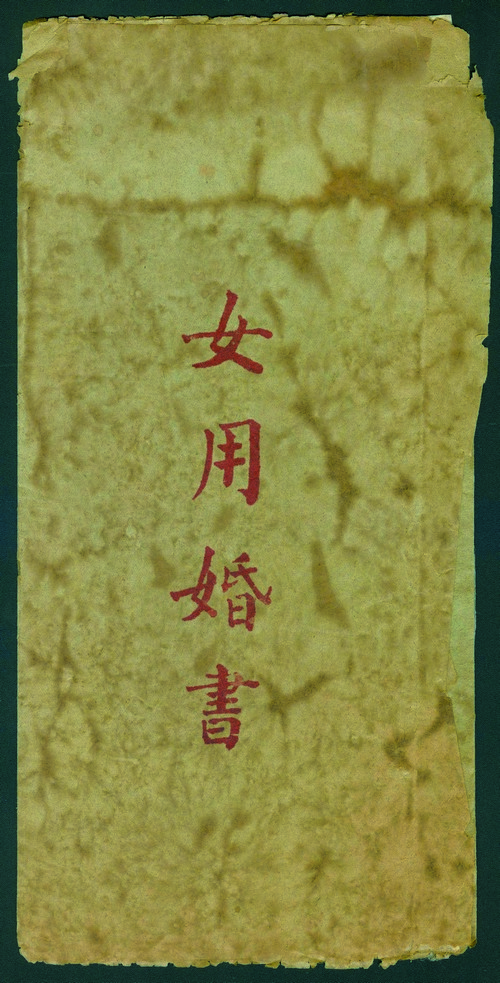 女用婚書